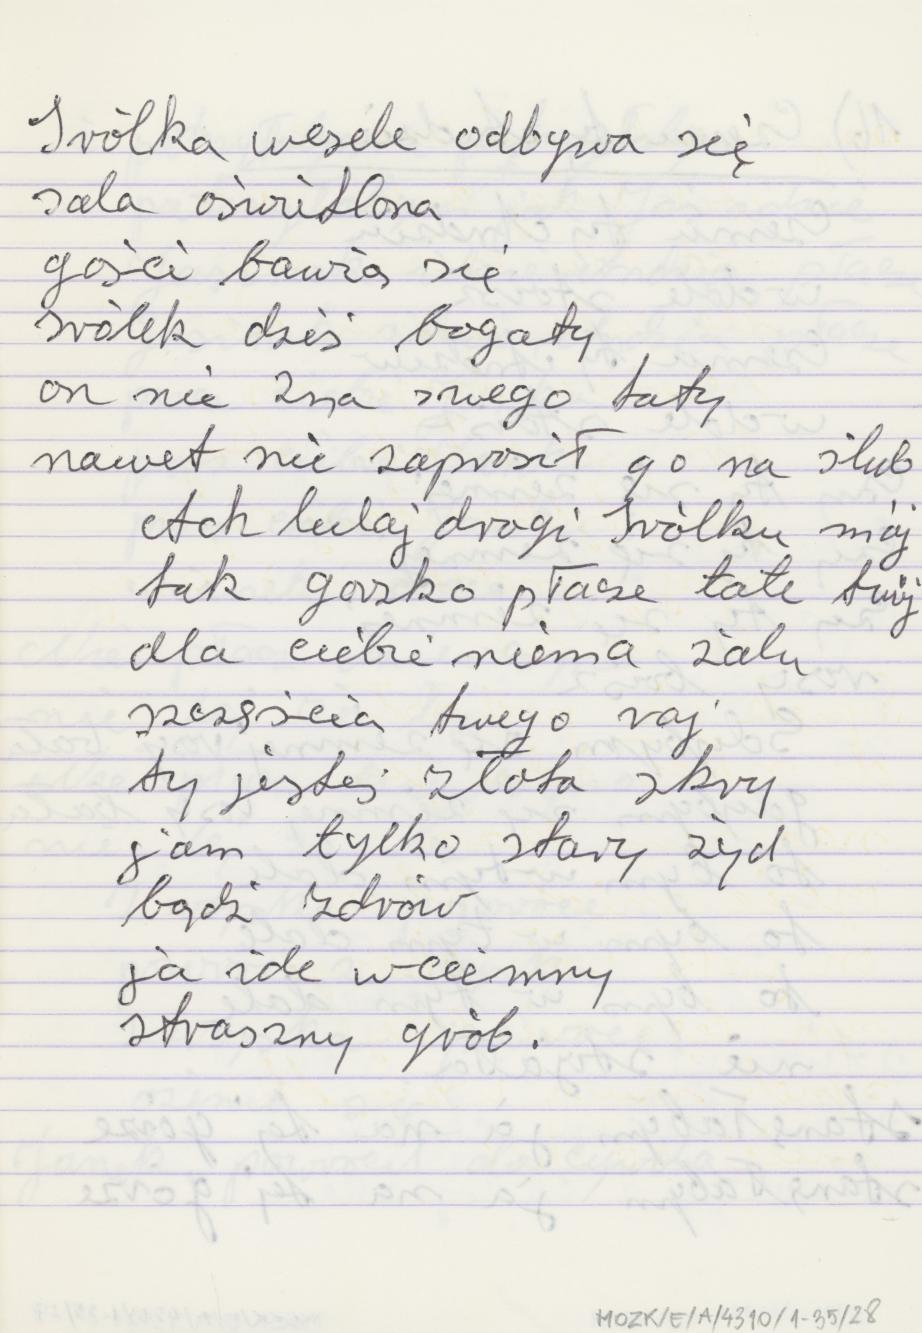 Srólka wesele odbywa się
sala oświetlona
gości bawią się
srólek dziś bogaty
on nie zna swego taty
nawet nie zaprosił go na ślub
Ach lulaj drogi Srólku mój
tak gorzko płacze tate twój
dla ciebie niema żalu
szczęścia twego raj
ty jesteś złota skry
jam tylko stary żyd
bądź zdrów
ja ide wciemny
straszny grób.
MOZK/E/A/4310/1-35/28